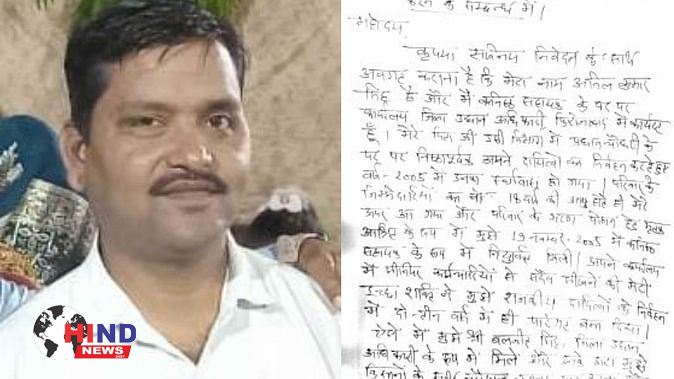 करने के सम्बन्ध में।
महोदय,
कृपया सविनय निवेदन के साथ
अवगत कराना है कि मेरा नाम अनिल कुमार
सिंह है और मैं कनिष्ठ सहायक के पद पर
कार्यालय, जिला उद्यान अधिकारी, फिरोजाबाद में कार्यरत
हूँ। मेरे पिता जी उसी विभाग में प्रधान चौधरी के
पद पर निष्ठापूर्वक अपने दायित्वों का निर्वहन करते हुए
वर्ष-2005 में उनका स्वर्गवास हो गया। परिवार के
जिम्मेदारियों का बोझ 18 वर्ष की आयु होते ही मेरे
ऊपर आ गया और परिवार के भरण पोषण हेतु मृतक
आश्रित के रूप में मुझे 19 नवम्बर-2005 में कनिष्ठ
सहायक के रूप में नियुक्ति मिली। अपने कार्यालय
में सीनियर कर्मचारियों से सदैव सीखने की मेरी
इच्छा शक्ति ने मुझे राजकीय दायित्वों के निर्वहन
में दो-तीन वर्ष में ही पारंगत बना दिया।
ऐसे में मुझे श्री बलजीत सिंह, जिला उद्यान
अधिकारी के रूप में मिले और उनके द्वारा मुझे
किसानों के
HIND
NEWS
24x7